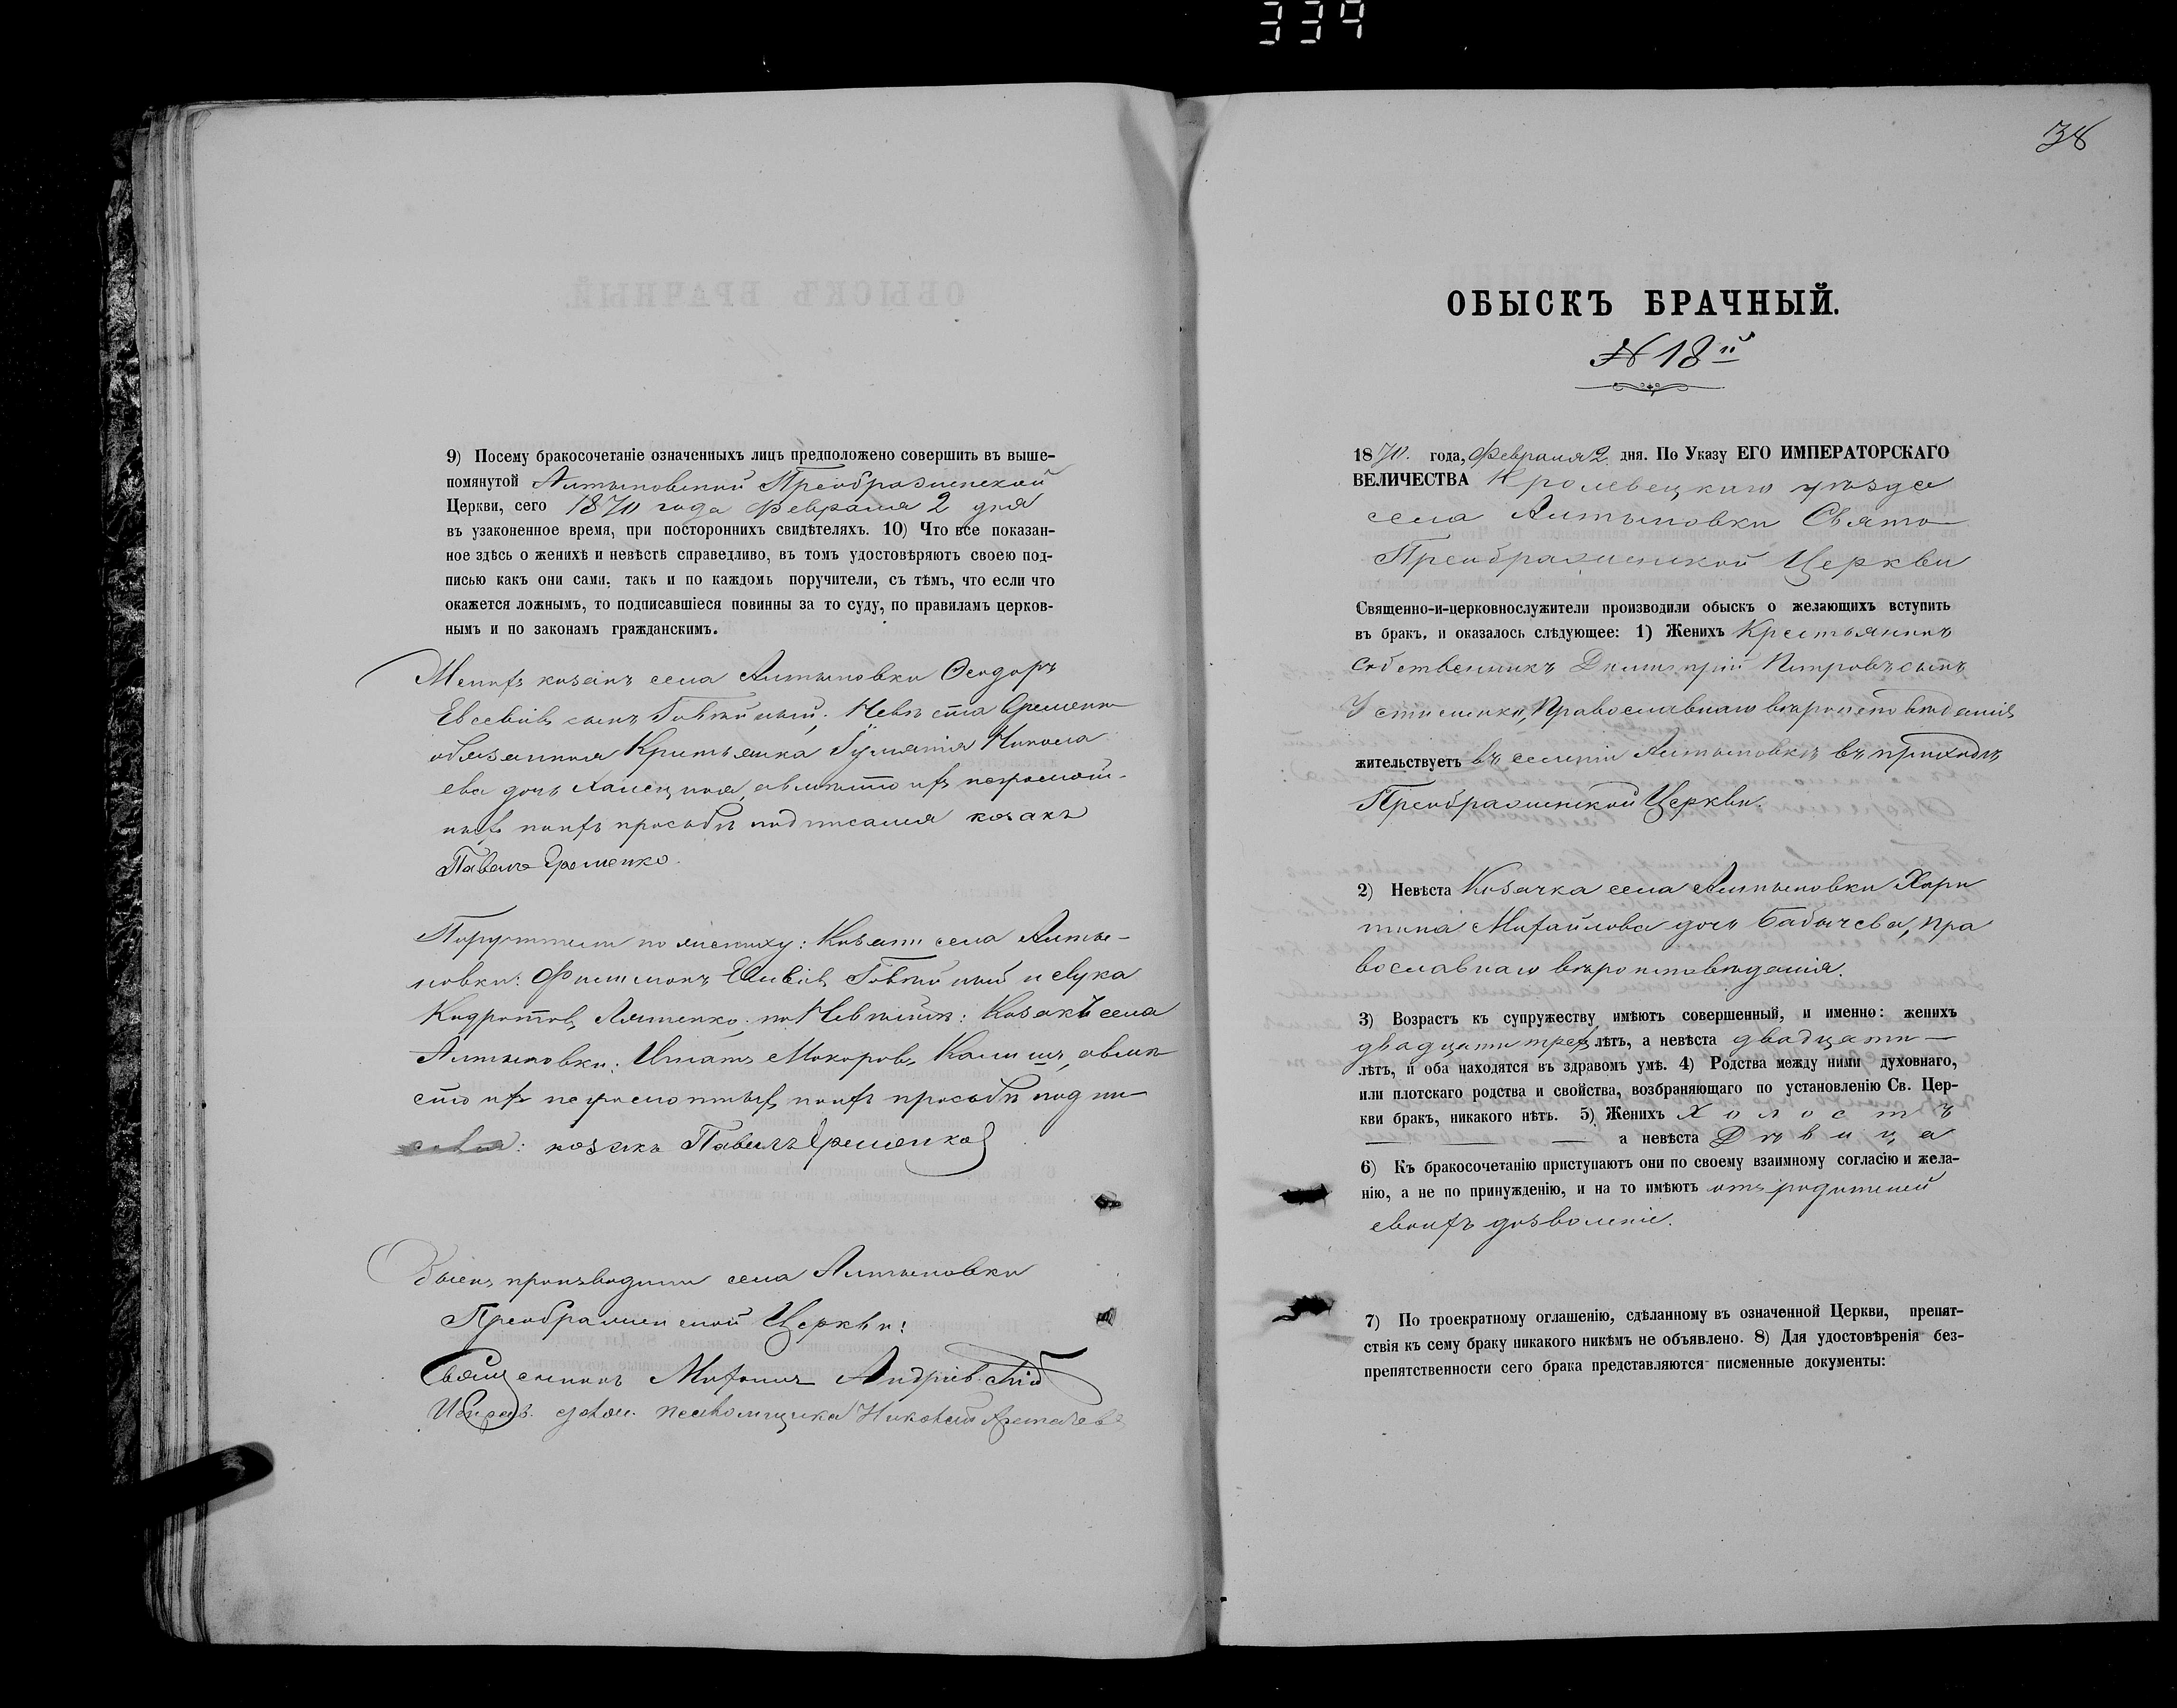 339
9) Посему бракосочетаніе означенныхъ лицъ предположено совершить въ выше-
помянутой Алтыновской Преображенской
Церкви, сего 1870 года февраля 2 дня
въ узаконенное время, при постороннихъ свидѣтеляхъ. 10) Что все показан-
ное здѣсь о женихѣ и невѣстѣ справедливо, въ томъ удостовѣряютъ своею под-
писью какъ они сами, такъ и по каждомъ поручители, съ тѣмъ, что если что
окажется ложнымъ, то подписавшіеся повинны за то суду, по правиламъ церков-
нымъ и по законамъ гражданскимъ.
козакъ села Алтыновки Ѳеодоръ
Евсевіевъ сынъ Невѣста временно
обязанная Крестьянка Никола
ева дочь вмѣсто ихъ неграмот-
ныхъ по ихъ просьбѣ подписался козакъ
Павелъ Еременко.
Поручители по жениху: Козаки села Алты-
новки: Филимонъ и Лука
по Невѣстѣ: Козакъ села
Алтыновки: Игнатъ вмѣ
сто ихъ неграмотныхъ по ихъ просьбѣ подпи
сался: козакъ Павелъ Еременко
Обыскъ производили села Алтыновки
Преображенской Церкви:
Священникъ Андріевскій
Николай
38
ОБЫСКЪ БРАЧНЫЙ.
№ 18й
1870. года, Февраля 2. дня. По Указу ЕГО ИМПЕРАТОРСКАГО
ВЕЛИЧЕСТВА Кролевецкаго уѣзда
села Алтыновки Свято
Преображенской Церкви
Священно-и-церковнослужители производили обыскъ о желающихъ вступить
въ бракъ, и оказалось слѣдующее: 1) Женихъ Крестьянинъ
собственникъ Димитрій Петровъ сынъ
Устименко, Православнаго вѣроисповѣданія
жительствуетъ въ селеніи Алтыновкѣ въ приходѣ
Преображенской Церкви.
2) Невѣста Козачка села Алтыновки Хари
тина Михайлова дочь Бабичева, пра
вославнаго вѣроисповѣданія.
3) Возрастъ къ супружеству имѣютъ совершенный, и именно: женихъ
двадцати трехъ лѣтъ, а невѣста двадцати —
лѣтъ, и оба находятся въ здравомъ умѣ. 4) Родства между ними духовнаго,
или плотскаго родства и свойства, возбраняющаго по установленію Св. Цер-
кви бракъ, никакого нѣтъ. 5) Женихъ Холостъ
— — — а невѣста Дѣвица
6) Къ бракосочетанію приступаютъ они по своему взаимному согласію и жела-
нію, а не по принужденію, и на то имѣютъ отъ родителей
своихъ дозволеніе.
7) По троекратному оглашенію, сдѣланному въ означенной Церкви, препят-
ствія къ сему браку никакого никѣмъ не объявлено. 8) Для удостовѣренія без-
препятственности сего брака представляются писменные документы: